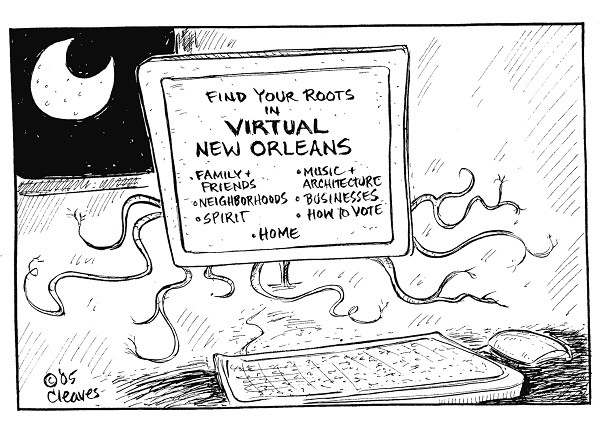 FIND YOUR ROOTS
IN
VIRTUAL
NEW ORLEANS
• FAMILY +
FRIENDS
• NEIGHBORHOODS
• SPIRIT
• MUSIC +
ARCHITECTURE
• BUSINESSES
• HOW TO VOTE
• HOME
© '05
Cleaves